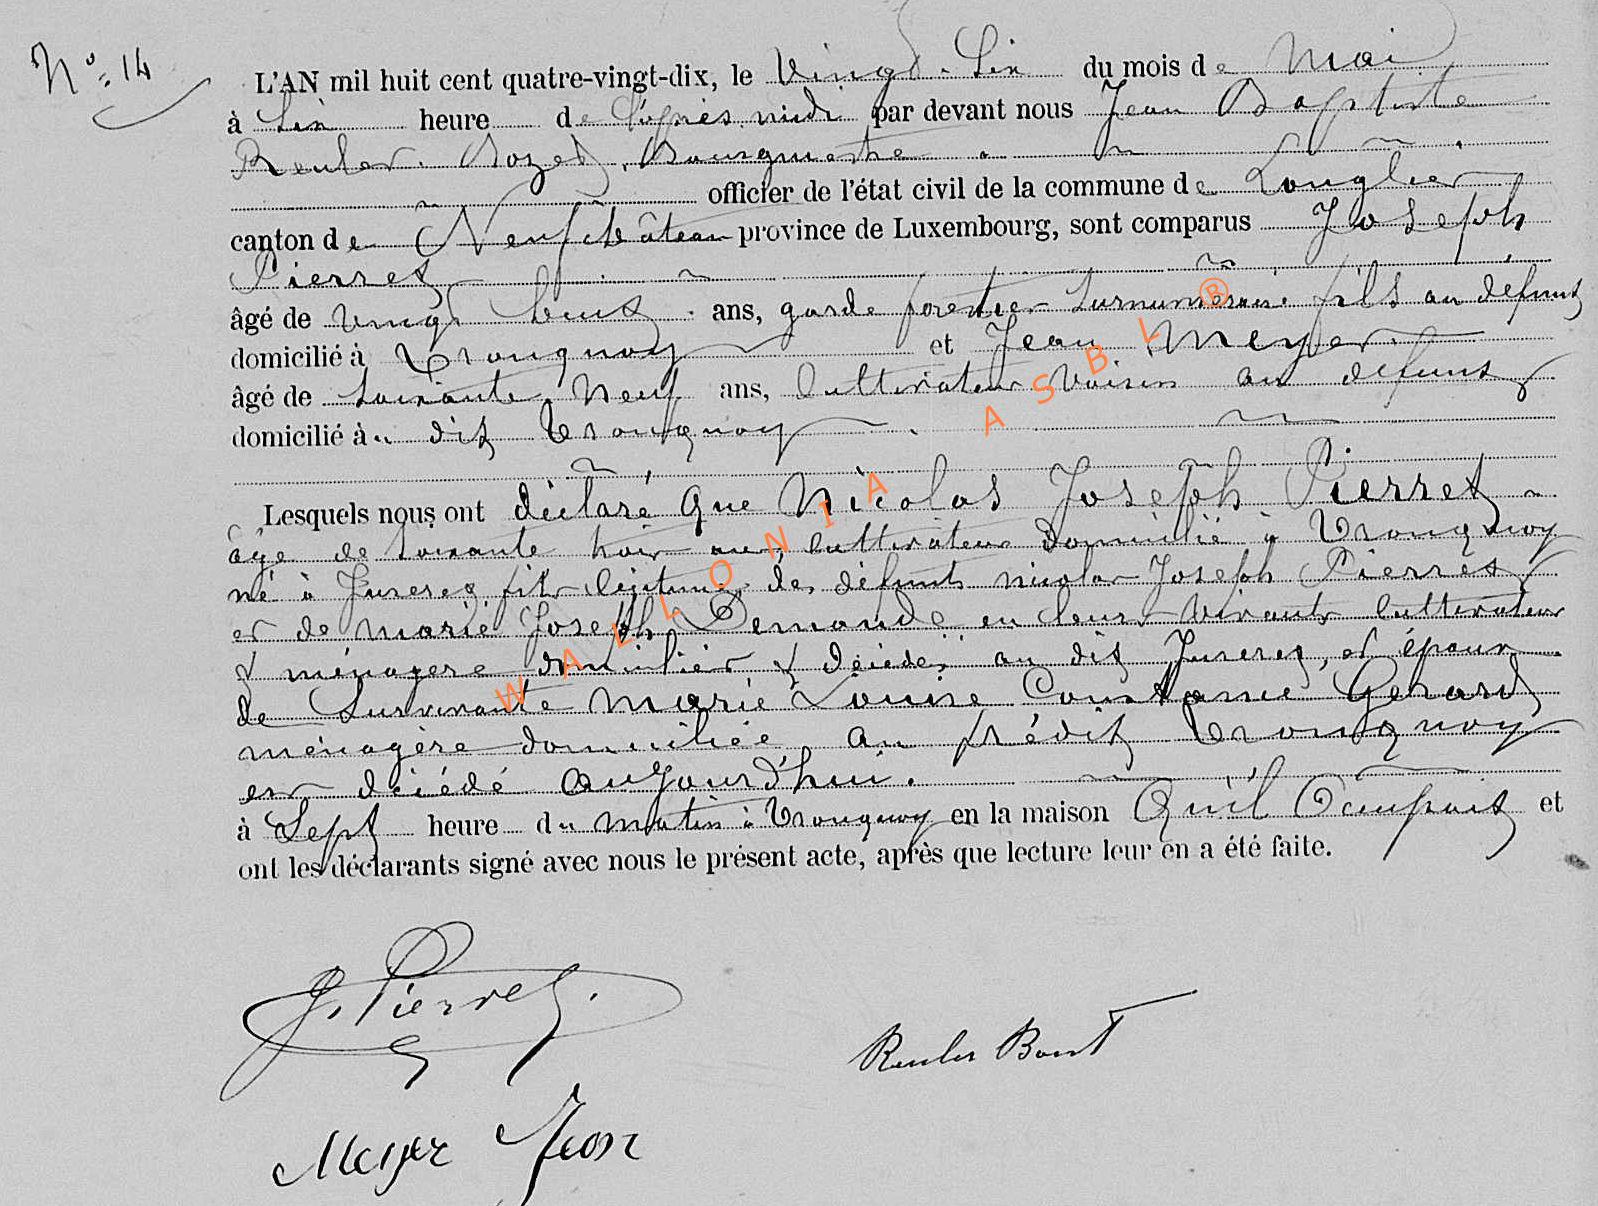 N° 14
L'AN mil huit cent quatre-vingt-dix, le Vingt-Six du mois de Mai
à Six heure de l'après midi par devant nous Jean Baptiste
Reuler Bozet, Bourgmestre
officier de l'état civil de la commune de Longlier
canton de Neufchâteau province de Luxembourg, sont comparus Joseph
Pierret
âgé de Vingt huit ans, garde forestier surnuméraire fils au défunt
domicilié à Tronquoy et Jean Meyer
âgé de soixante Neuf ans, Cultivateur Voisin au défunt
domicilié à u dit Tronquoy
Lesquels nous ont déclaré que Nicolas Joseph Pierret
âgé de soixante trois ans, Cultivateur domicilié à Tronquoy
né à Juseret fils légitime des défunts nicolas Joseph Pierret
et de marie Joseph Demande en leurs vivants Cultivateur
& ménagère domiciliés & décédés au dit Juseret, et époux
de Survivante Marie Louise Constance Gerard
ménagère domiciliée au prédit Tronquoy
est décédé aujourd'hui.
à Sept heure du matin à Tronquoy en la maison Qu'il Occupait et
ont les déclarants signé avec nous le présent acte, après que lecture leur en a été faite.
J. Pierret.
Reuler
Meyer Jean
WALLONIA ASBL ®